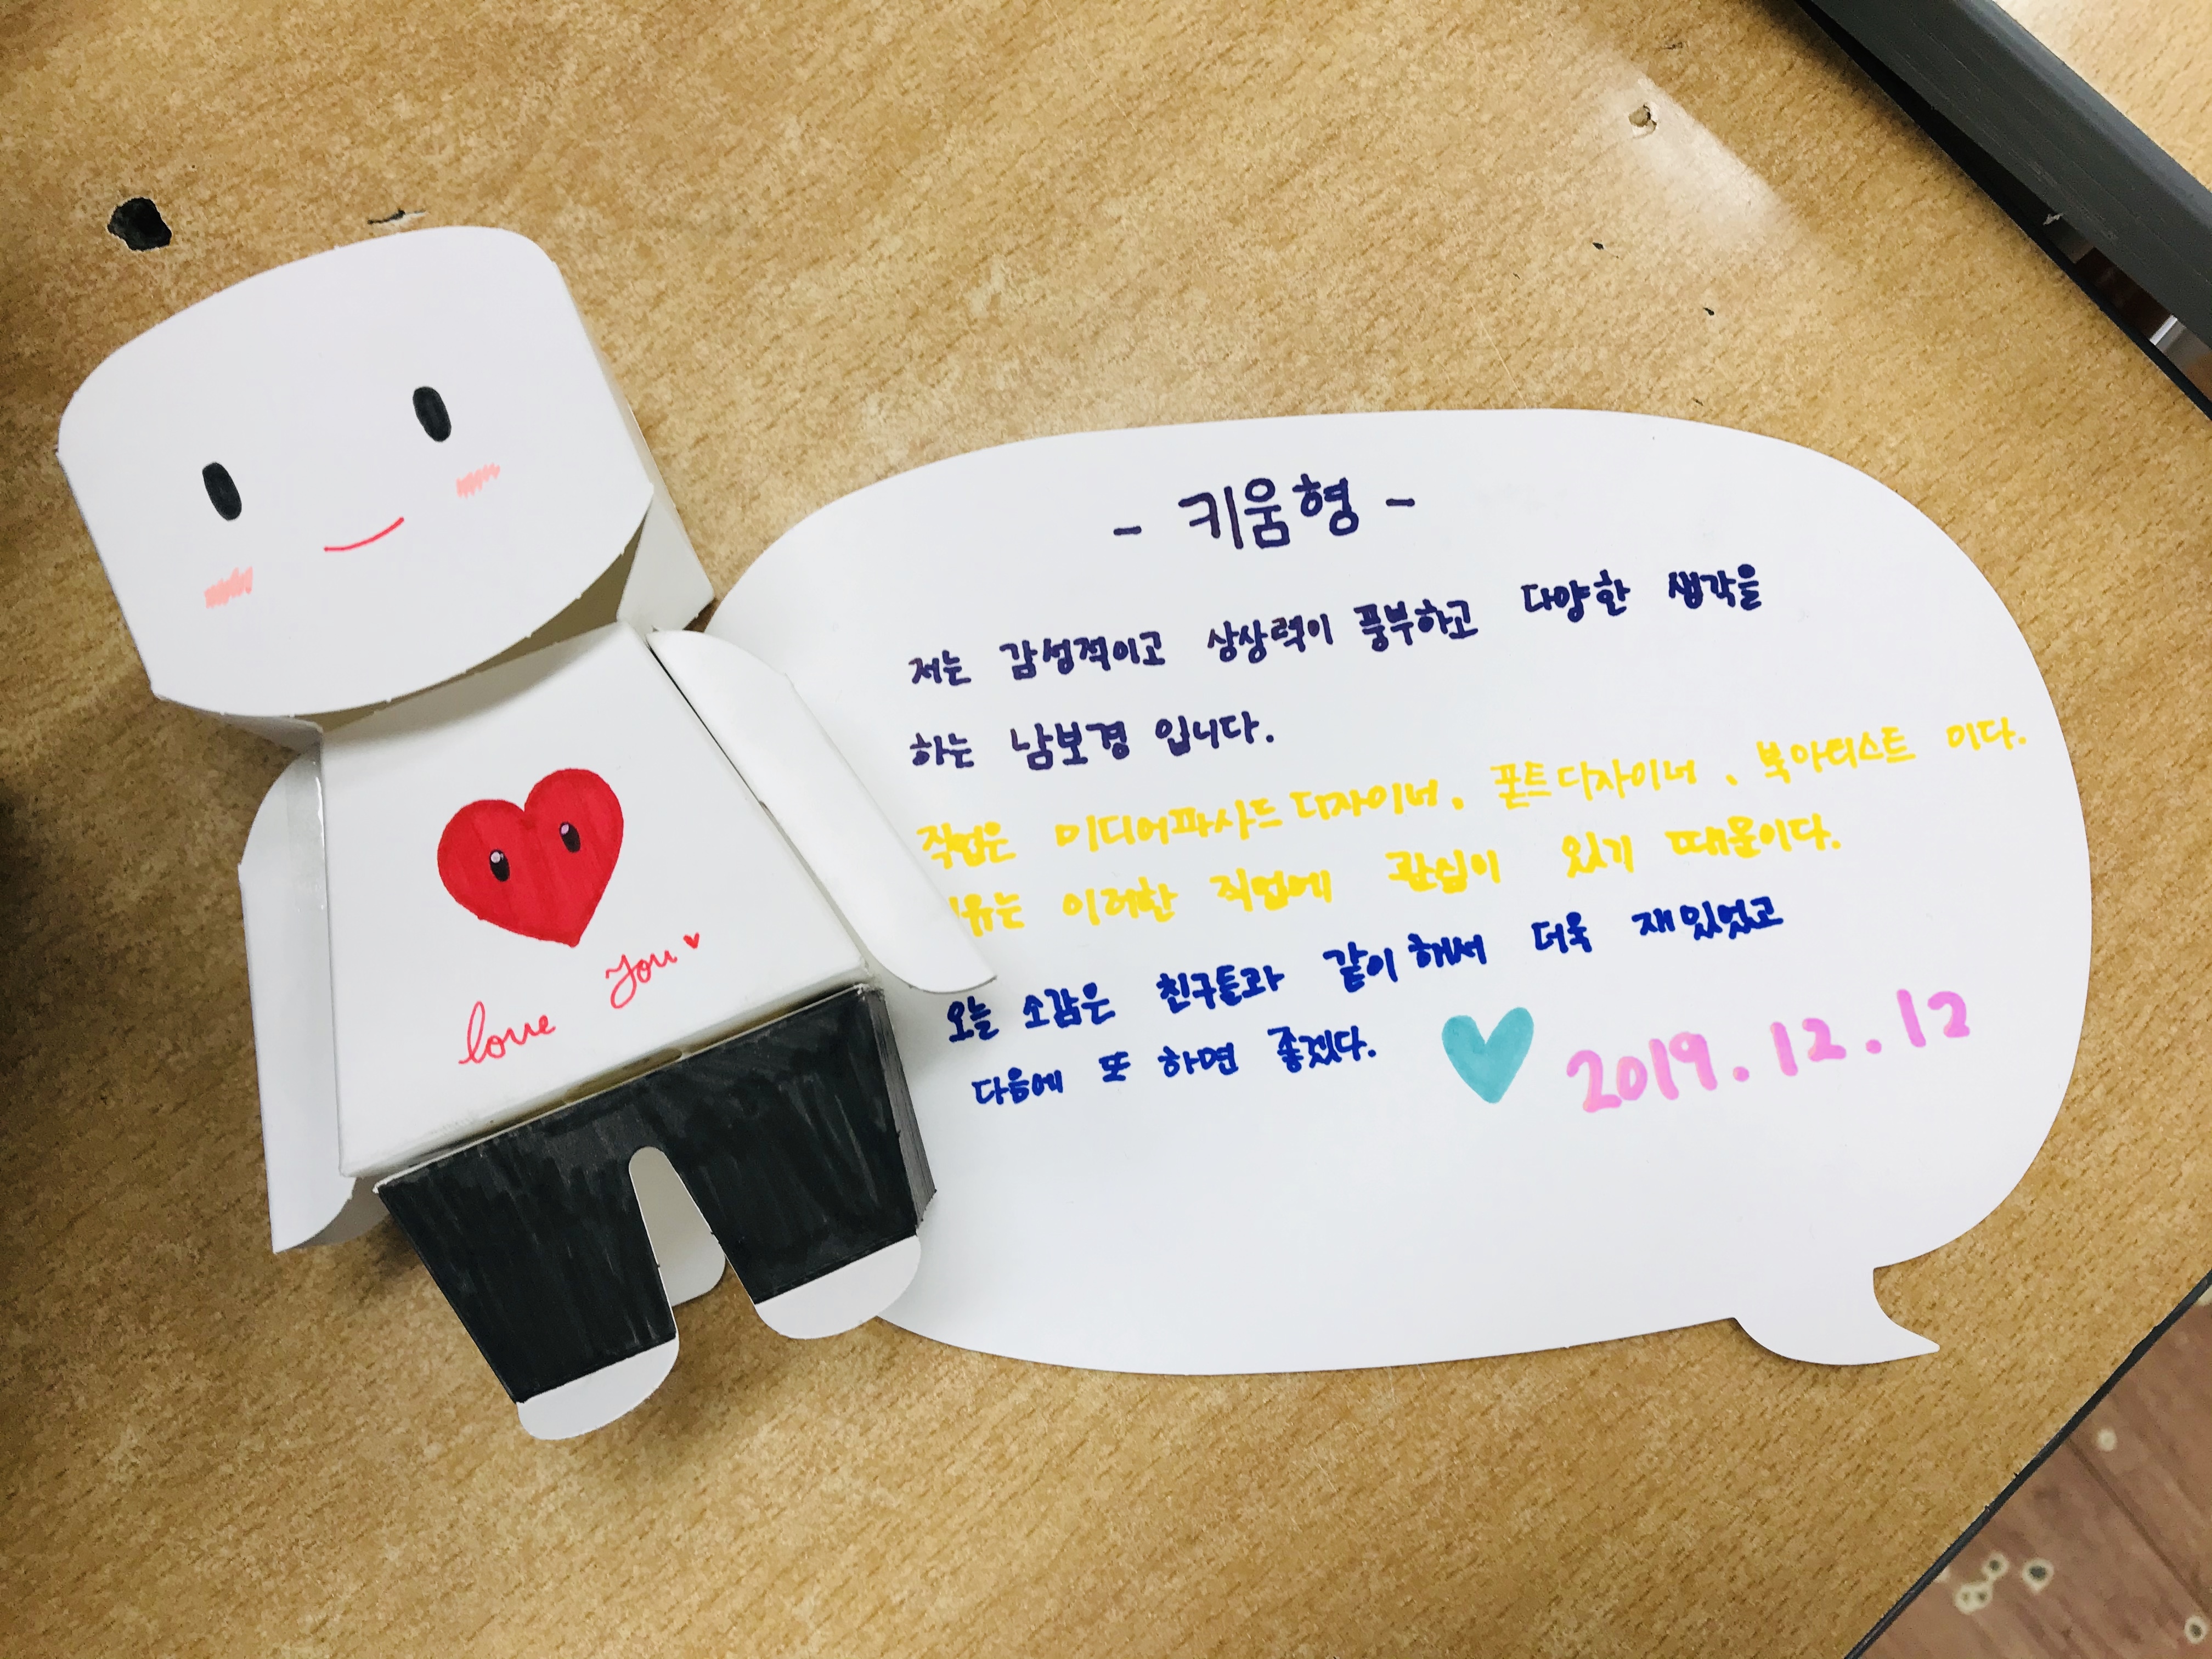 - 키움형 -
저는 감성적이고 상상력이 풍부하고 다양한 생각을
하는 남보경 입니다.
직업은 미디어파사드 디자이너, 폰트디자이너, 북아티스트 이다.
이유는 이러한 직업에 관심이 있기 때문이다.
오늘 소감은 친구들과 같이 해서 더욱 재밌었고
다음에 또 하면 좋겠다.
2019.12.12
love you